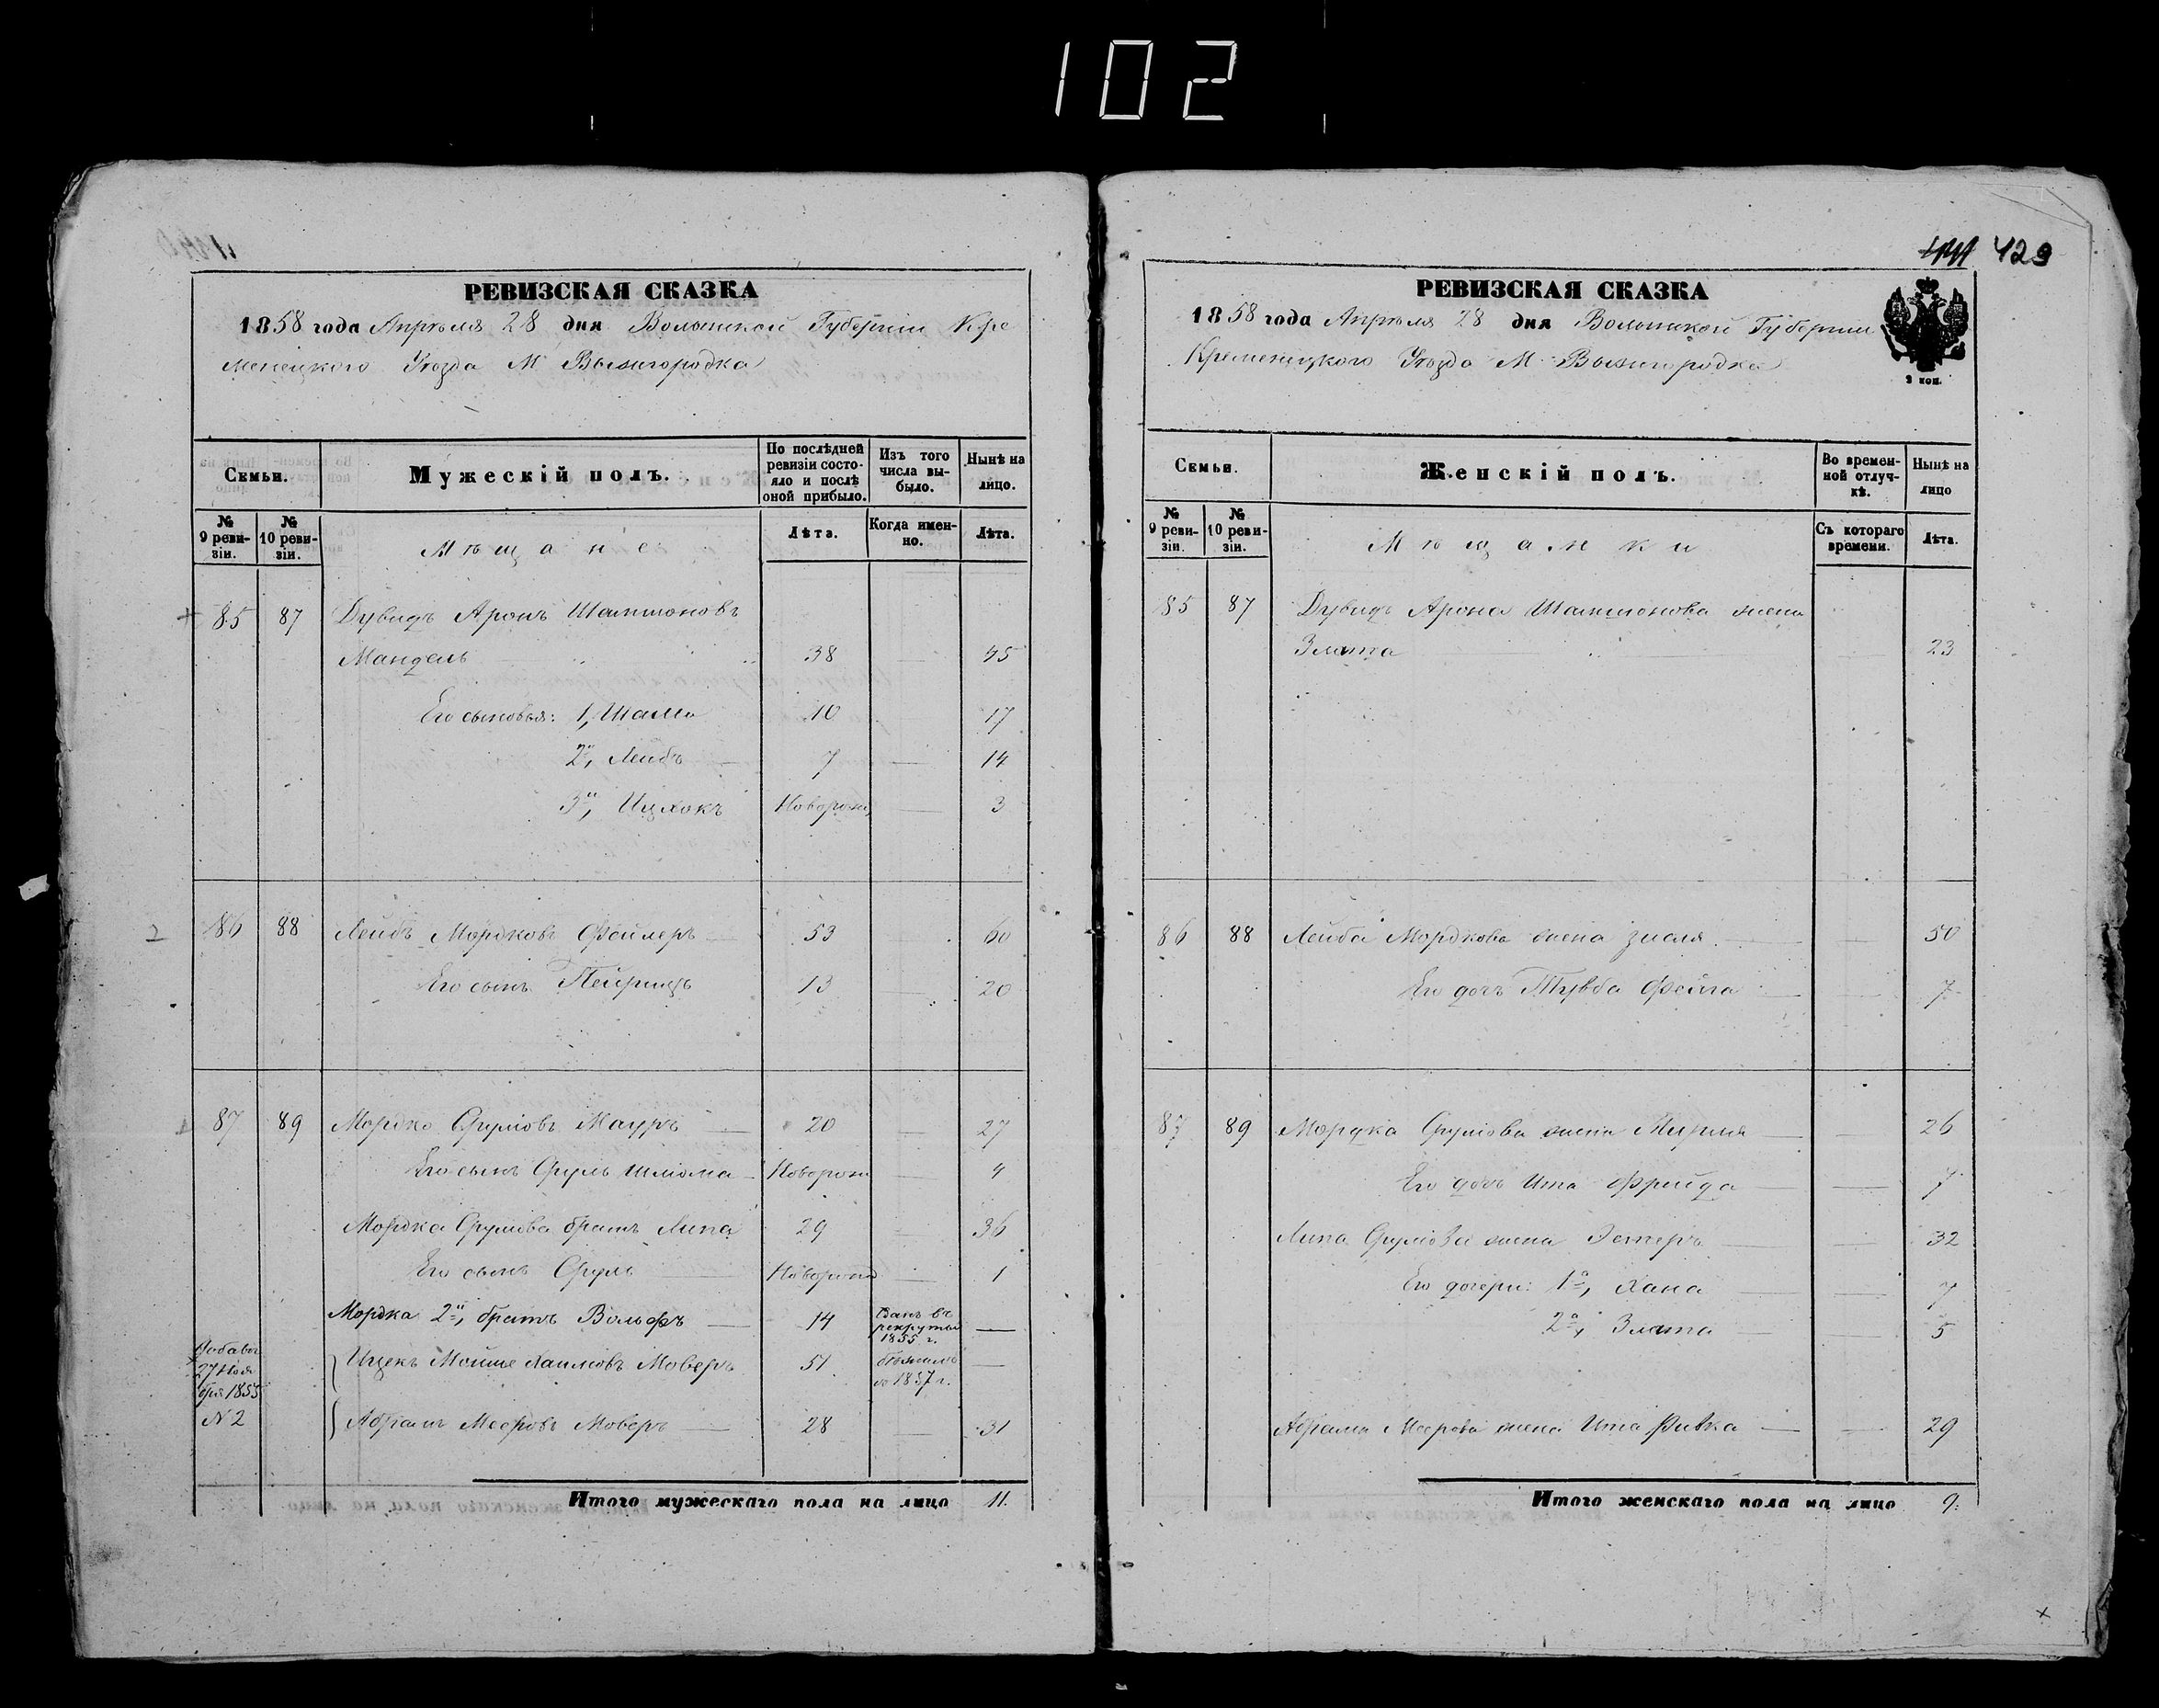 102
РЕВИЗСКАЯ СКАЗКА
1858 года Апрѣля 28 дня Волынской Губерніи Кре
менецкого Уѣзда М Вышгородка
Семьи.
Мужескій полъ.
По послѣдней ревизіи состояло и послѣ оной прибыло.
Изъ того числа выбыло.
Нынѣ на лицо.
№ 9 реви-зіи.
№ 10 реви-зіи.
Мѣщане
Лѣта.
Когда имен-но.
Лѣта.
85 87 Дувидъ Аронъ Шампшоновъ
Мандель 38 — 45
Его сыновья: 1, Шама 10 17
2й, Лейбъ 7 — 14
3й, Ицхокъ Новорожд — 3
86 88 Лейбъ Мордковъ Фейлеръ 53 60
Его сынъ Пейрицъ 13 — 20
87 89 Мордко Срулiовъ Мауръ 20 — 27
Его сынъ Сруль Шліома Новорож — 4
Мордка Срулiова братъ Липа 29 — 36
Его сынъ Сруль Новорожд — 1
Мордка 2й, братъ Вольфъ — 14 Сданъ въ рекруты 1855 г. —
Добавл 27 Ноя бря 1855 N 2
Ицекъ Мойше Хаимовъ Моверъ 51 бѣжалъ въ 1857 г. —
Абрамъ Мееровъ Моверъ — 28 — 31
Итого мужескаго пола на лицо 11.
429
РЕВИЗСКАЯ СКАЗКА
1858 года Апрѣля 28 дня Волынской Губерніи
Кременецкого Уѣзда М Вышгородка
2 коп.
Семьи.
Женскій полъ.
Во времен-ной отлуч-кѣ.
Нынѣ на лицо
№ 9 реви-зіи.
№ 10 реви-зіи.
Мѣщанки
Съ котораго времени.
Лѣта.
85 87 Дувидъ Арона Шампшонова жена
Злата — 23
86 88 Лейба Мордкова жена Зисля — 50
Его дочь Тувба Фейга — 7
87 89 Мордка Срулiова жена Мирля — 26
Его дочь Ита Фрейда — 7
Липа Срулiова жена Эстеръ — 32
Его дочери: 1а, Хана — 7
2а, Злата — 5
Абрама Меерова жена Ита Ривка — 29
Итого женскаго пола на лицо 9.